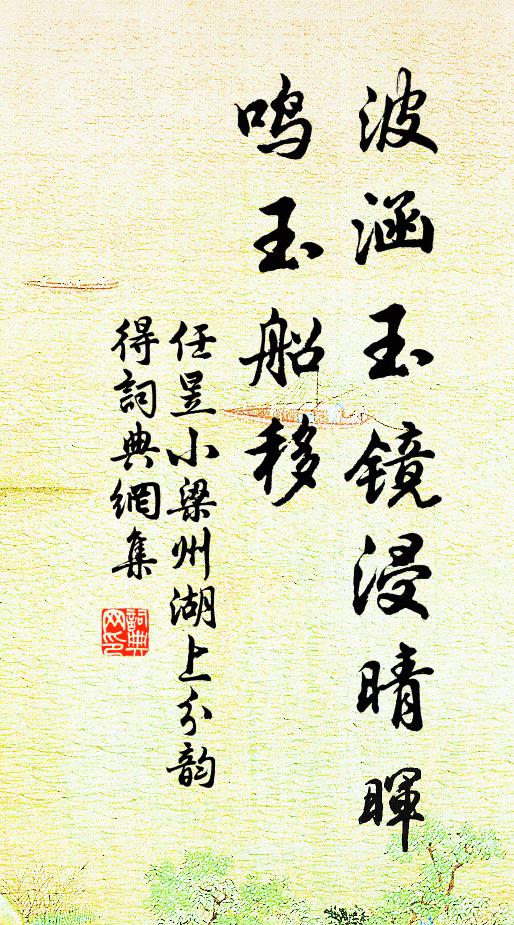 波涵玉镜浸晴暉
鸣玉船移
任昱小梁州湖上分韵
得詞典網集
詞典
网印